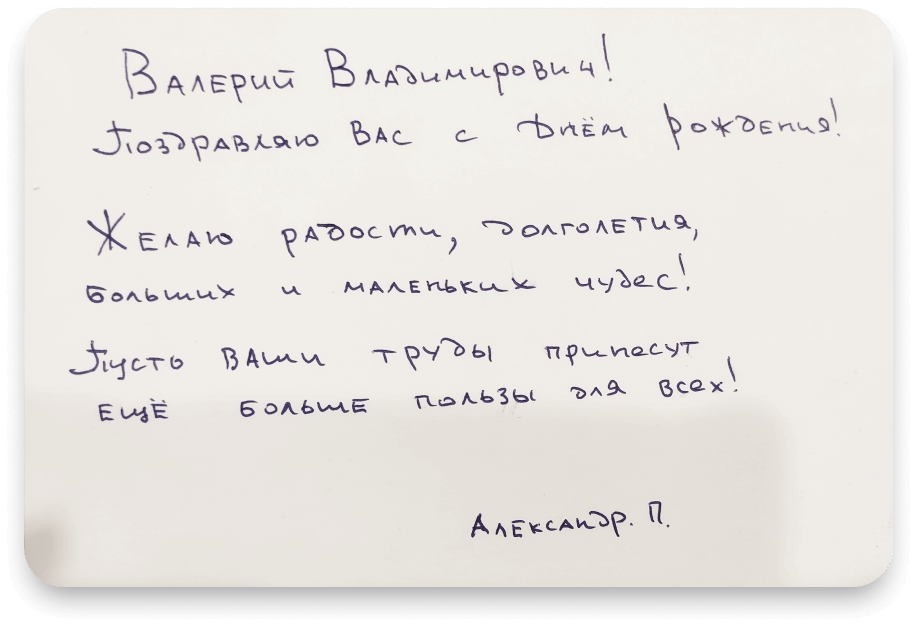 Валерий Владимирович!
Поздравляю Вас с Днём рождения!
Желаю радости, долголетия,
больших и маленьких чудес!
Пусть Ваши труды принесут
ещё больше пользы для всех!
Александр. П.